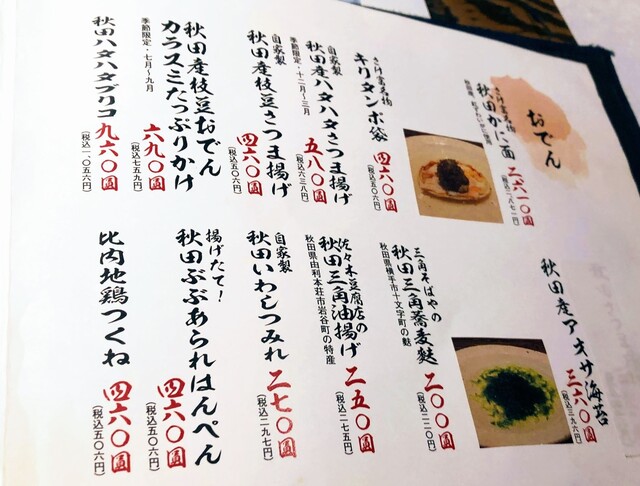 おでん
さけ富名物
秋田かに面
二六一〇圓
(税込二八七一円)
自家製
キリタンポ袋
四六〇圓
(税込五〇六円)
自家製
秋田産ハタハタさつま揚げ
季節限定・十二月〜三月
五八〇圓
(税込六三八円)
自家製
秋田産枝豆さつま揚げ
四六〇圓
(税込五〇六円)
秋田産枝豆おでん
カラスミたっぷりかけ
季節限定・七月〜九月
六九〇圓
(税込七五九円)
秋田ハタハタブリコ
九六〇圓
(税込一、〇五六円)
秋田産アオサ海苔
三六〇圓
(税込三九六円)
三角そばやの
秋田三角蕎麦麩
秋田県横手市十文字町の麩
二〇〇圓
(税込二二〇円)
佐々木豆腐店の
秋田三角油揚げ
秋田県由利本荘市岩谷町の特産
二五〇圓
(税込二七五円)
自家製
秋田いわしつみれ
二七〇圓
(税込二九七円)
揚げたて！
秋田ぶぶあられはんぺん
四六〇圓
(税込五〇六円)
比内地鶏つくね
四六〇圓
(税込五〇六円)